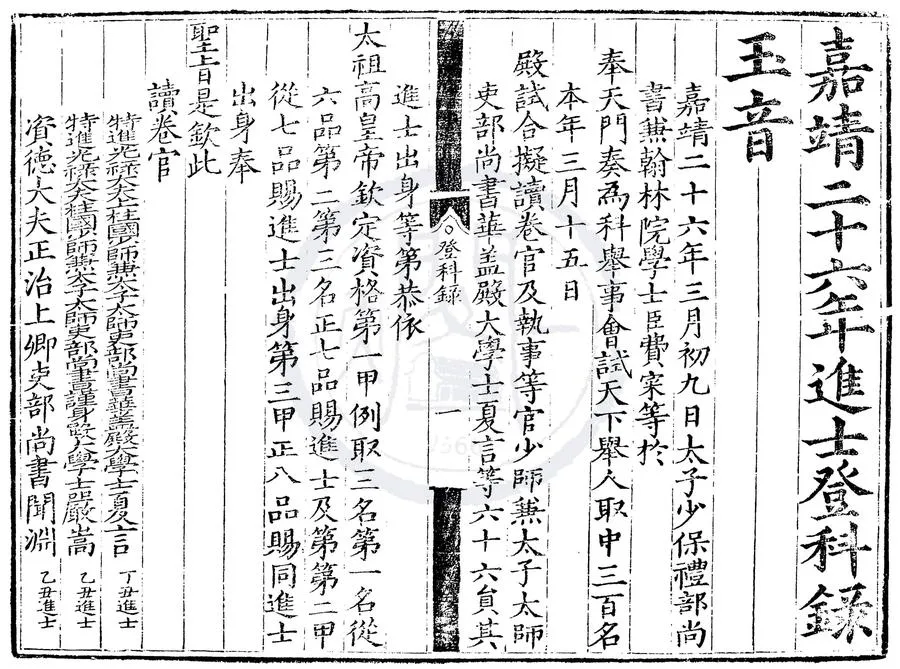 嘉靖二十六年進士登科錄
玉音
嘉靖二十六年三月初九日太子少保禮部尚
書兼翰林院學士臣費寀等於
奉天門奏爲科舉事會試天下舉人取中三百名
本年三月十五日
殿試合擬讀卷官及執事等官少師兼太子太師
吏部尚書華蓋殿大學士夏言等六十六貟其
登科錄 一
進士出身等第恭依
太祖高皇帝欽定資格第一甲例取三名第一名從
六品第二第三名正七品賜進士及第第二甲
從七品賜進士出身第三甲正八品賜同進士
出身奉
聖旨是欽此
讀卷官
特進光祿大夫上柱國少師兼太子太師吏部尚書華蓋殿大學士夏言 丁丑進士
特進光祿大夫柱國少師兼太子太師吏部尚書謹身殿大學士嚴嵩 乙丑進士
資德大夫正治上卿吏部尚書聞淵 乙丑進士